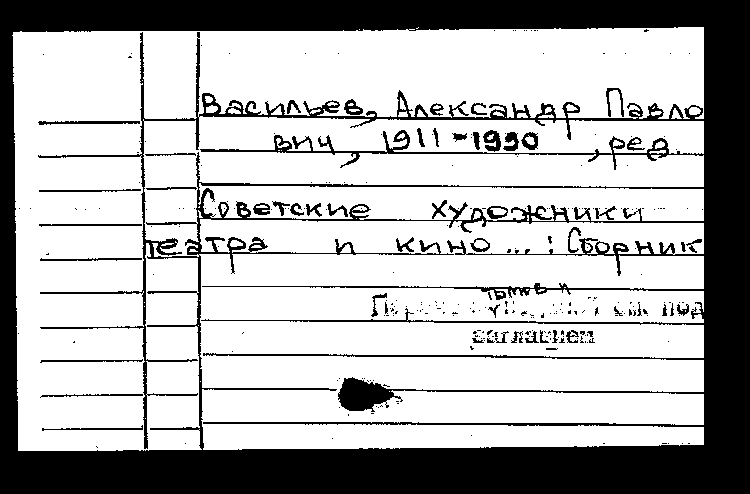 Васильев, Александр Павло
вич, 1911-1990, ред.
Советские художники
театра и кино...: Сборник
томов и
см. под
заглавием